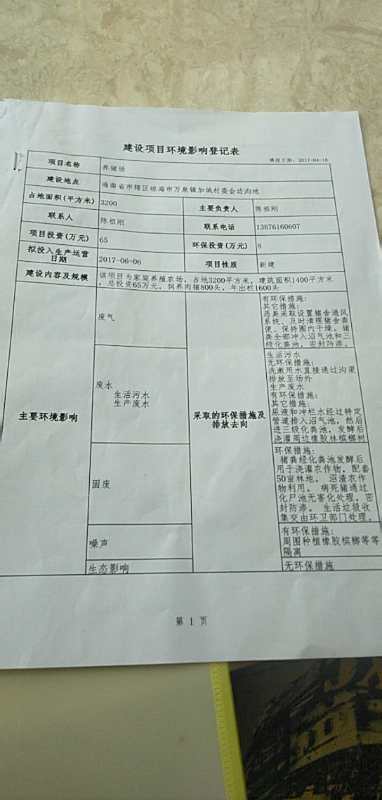 建设项目环境影响登记表
填报日期：2017-04-18
项目名称 养猪场
建设地点 海南省市辖区琼海市万泉镇加城村委会坊沟地
占地面积(平方米) 3200 主要负责人 陈祖刚
联系人 陈祖刚 联系电话 13876160607
项目投资(万元) 65 环保投资(万元) 8
拟投入生产运营
日期 2017-06-06 项目性质 新建
建设内容及规模 该项目为家庭养殖农场，占地3200平方米，建筑面积1400平方米
，总投资65万元，饲养肉猪800头，年出栏1600头
主要环境影响
废气
采取的环保措施及
排放去向
有环保措施：
其它措施：
恶臭采取设置猪舍通风
系统、及时清理猪舍粪
便、保持圈内干燥。猪
粪全部冲入沼气池和三
级化粪池，密封防渗。
废水
生活污水
生产废水
生活污水
无环保措施：
洗漱用水直接通过沟渠
排放至场外
生产废水
有环保措施：
其它措施：
尿液和冲栏水经过特定
管道排入沼气池，然后
进三级化粪池，发酵后
浇灌周边橡胶林槟榔树
固废
环保措施：
猪粪经化粪池发酵后
用于浇灌农作物，配套
50亩林地。沼渣农作
物利用。病死猪通过
化尸池无害化处理，密
封防渗。生活垃圾收
集交由环卫部门处理。
噪声
有环保措施：
周围种植橡胶槟榔等等
隔离
生态影响
无环保措施
第 1 页